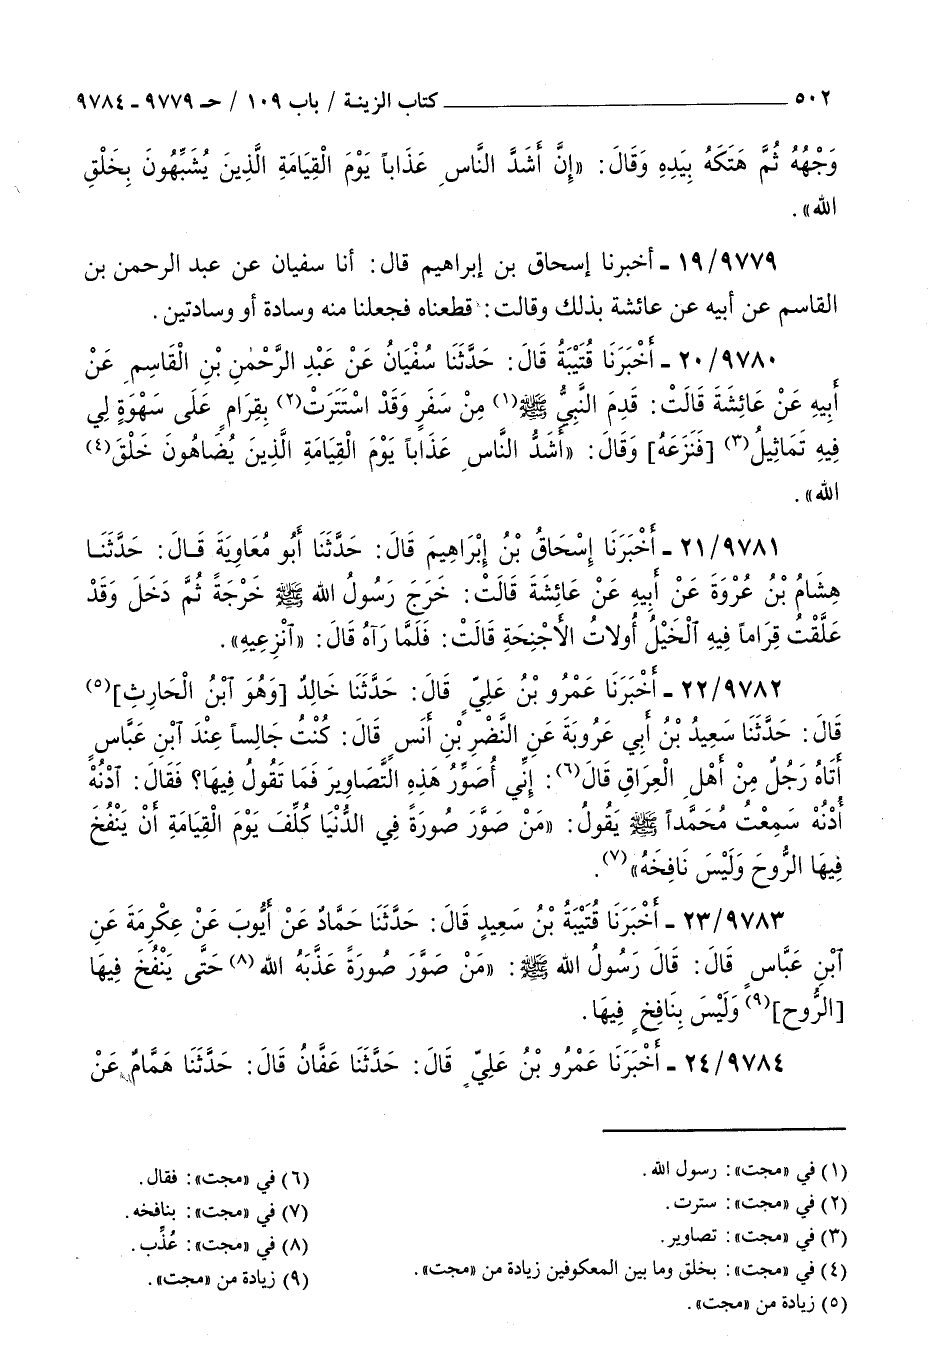 ٥٠٢ ـــــــــــــــــــــــــ كتاب الزينة / باب ١٠٩ / حـ ٩٧٧٩ ـ ٩٧٨٤
وَجْهُهُ ثُمَّ هَتَكَهُ بِيَدِهِ وَقَالَ: «إِنَّ أَشَدَّ النَّاسِ عَذَاباً يَوْمَ الْقِيَامَةِ الَّذِينَ يُشَبِّهُونَ بِخَلْقِ
الله».
١٩/٩٧٧٩ ـ أخبرنا إسحاق بن إبراهيم قال: أنا سفيان عن عبد الرحمن بن
القاسم عن أبيه عن عائشة بذلك وقالت: قطعناه فجعلنا منه وسادة أو وسادتين.
٢٠/٩٧٨٠ ـ أَخْبَرَنَا قُتَيْبَةُ قَالَ: حَدَّثَنَا سُفْيَانُ عَنْ عَبْدِ الرَّحْمٰنِ بْنِ الْقَاسِمِ عَنْ
أَبِيهِ عَنْ عَائِشَةَ قَالَتْ: قَدِمَ النَّبِيُّ ﷺ(١) مِنْ سَفَرٍ وَقَدْ اسْتَتَرَتْ(٢) بِقِرَامٍ عَلَى سَهْوَةٍ لِي
فِيهِ تَمَاثِيلُ(٣) [فَنَزَعَهُ] وَقَالَ: «أَشَدُّ النَّاسِ عَذَاباً يَوْمَ الْقِيَامَةِ الَّذِينَ يُضَاهُونَ خَلْقَ(٤)
الله».
٢١/٩٧٨١ ـ أَخْبَرَنَا إِسْحَاقُ بْنُ إِبْرَاهِيمَ قَالَ: حَدَّثَنَا أَبُو مُعَاوِيَةَ قَالَ: حَدَّثَنَا
هِشَامُ بْنُ عُرْوَةَ عَنْ أَبِيهِ عَنْ عَائِشَةَ قَالَتْ: خَرَجَ رَسُولُ الله ﷺ خَرْجَةً ثُمَّ دَخَلَ وَقَدْ
عَلَّقْتُ قِرَاماً فِيهِ ٱلْخَيْلُ أُولَاتُ الأَجْنِحَةِ قَالَتْ: فَلَمَّا رَآهُ قَالَ: «ٱنْزِعِيهِ».
٢٢/٩٧٨٢ ـ أَخْبَرَنَا عَمْرُو بْنُ عَلِيٍّ قَالَ: حَدَّثَنَا خَالِدٌ [وَهُوَ ٱبْنُ الْحَارِثِ](٥)
قَالَ: حَدَّثَنَا سَعِيدُ بْنُ أَبِي عَرُوبَةَ عَنِ النَّضْرِ بْنِ أَنَسٍ قَالَ: كُنْتُ جَالِساً عِنْدَ ٱبْنِ عَبَّاسٍ
أَتَاهُ رَجُلٌ مِنْ أَهْلِ الْعِرَاقِ قَالَ(٦): إِنِّي أُصَوِّرُ هَذِهِ التَّصَاوِيرَ فَمَا تَقُولُ فِيهَا؟ فَقَالَ: ٱدْنُهْ
أُدْنُهْ سَمِعْتُ مُحَمَّداً ﷺ يَقُولُ: «مَنْ صَوَّرَ صُورَةً فِي الدُّنْيَا كُلِّفَ يَوْمَ الْقِيَامَةِ أَنْ يَنْفُخَ
فِيهَا الرُّوحَ وَلَيْسَ نَافِخَهُ»(٧).
٢٣/٩٧٨٣ ـ أَخْبَرَنَا قُتَيْبَةُ بْنُ سَعِيدٍ قَالَ: حَدَّثَنَا حَمَّادٌ عَنْ أَيُّوبَ عَنْ عِكْرِمَةَ عَنِ
ٱبْنِ عَبَّاسٍ قَالَ: قَالَ رَسُولُ الله ﷺ: «مَنْ صَوَّرَ صُورَةً عَذَّبَهُ الله(٨) حَتَّى يَنْفُخَ فِيهَا
[الرُّوح](٩) وَلَيْسَ بِنَافِخٍ فِيهَا.
٢٤/٩٧٨٤ ـ أَخْبَرَنَا عَمْرُو بْنُ عَلِيٍّ قَالَ: حَدَّثَنَا عَفَّانُ قَالَ: حَدَّثَنَا هَمَّامٌ عَنْ
(١) في «مجت»: رسول الله.
(٢) في «مجت»: سترت.
(٣) في «مجت»: تصاوير.
(٤) في «مجت»: بخلق وما بين المعكوفين زيادة من «مجت».
(٥) زيادة من «مجت».
(٦) في «مجت»: فقال.
(٧) في «مجت»: بنافخه.
(٨) في «مجت»: عُذِّب.
(٩) زيادة من «مجت».